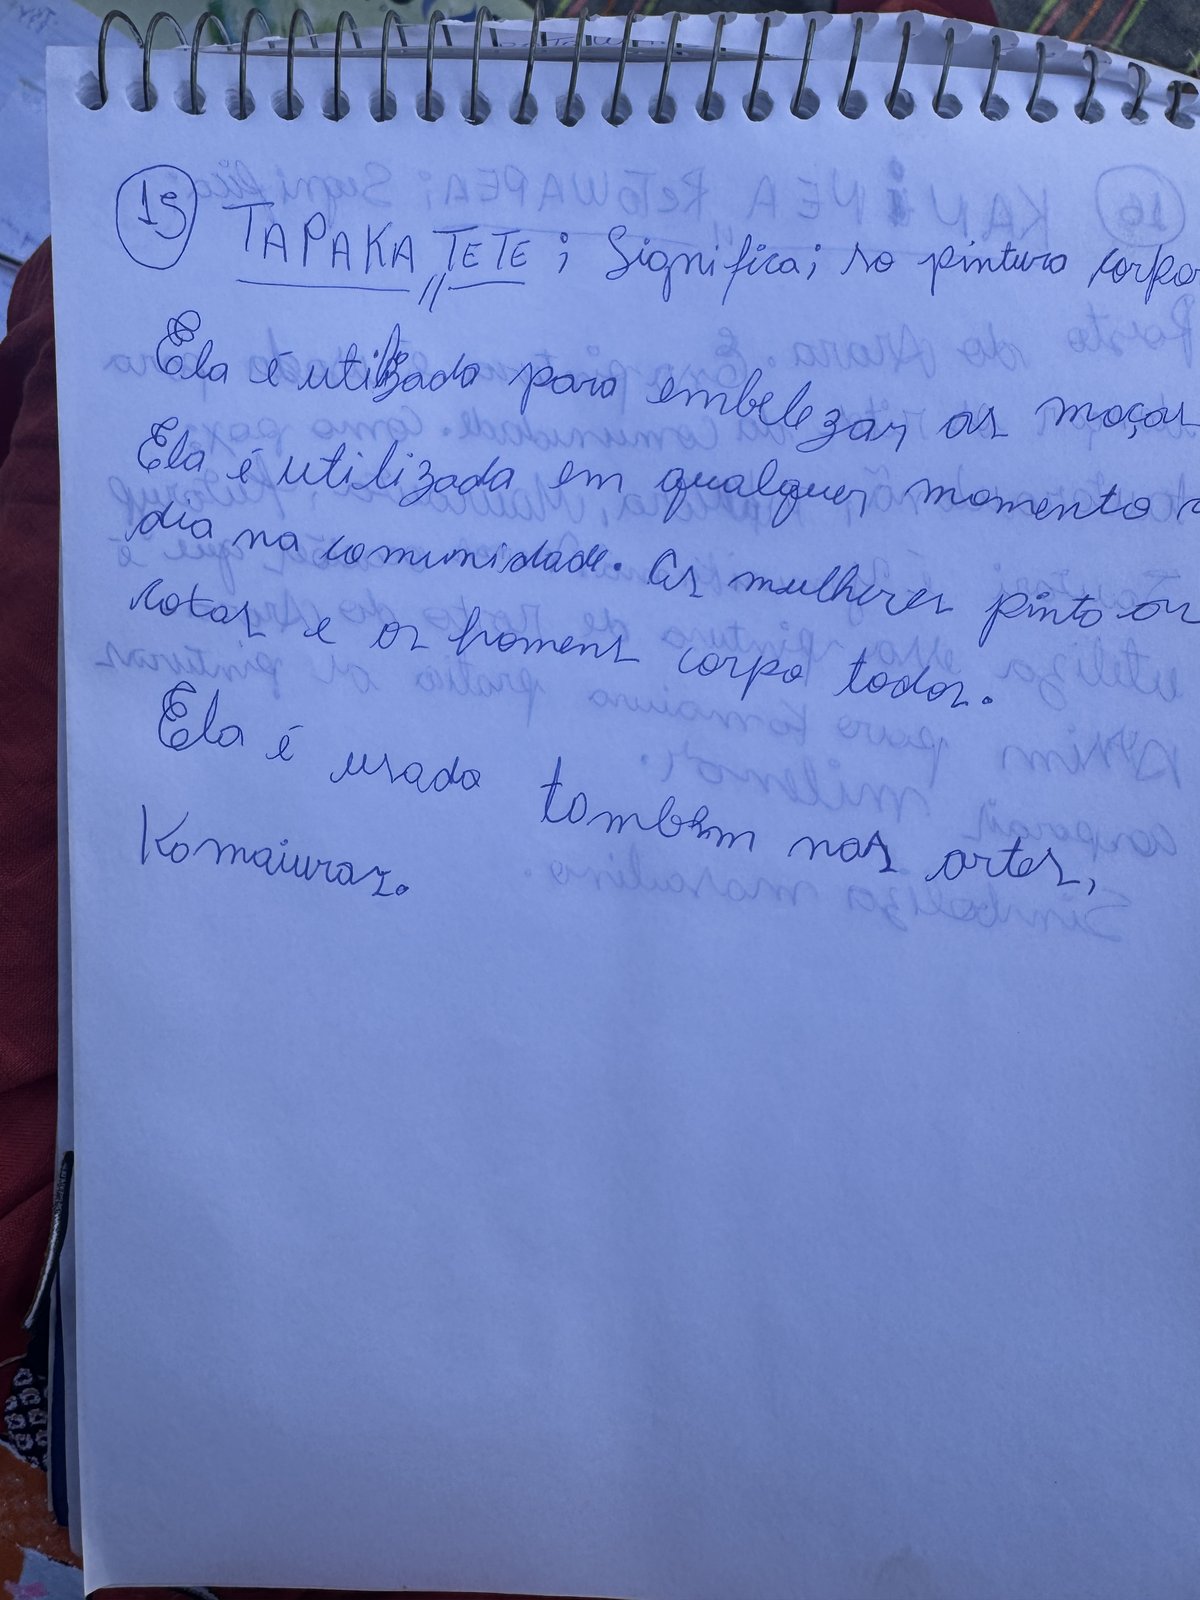 15 TAPAKA,, TETE; Significa; so pintura corpo
Ela é utilizada para embelezar as moças
Ela é utilizada em qualquer momento
dia na comunidade. As mulheres pinto as
cotas e os homens corpo todos.
Ela é usada também nas artes,
Kamaiuras.